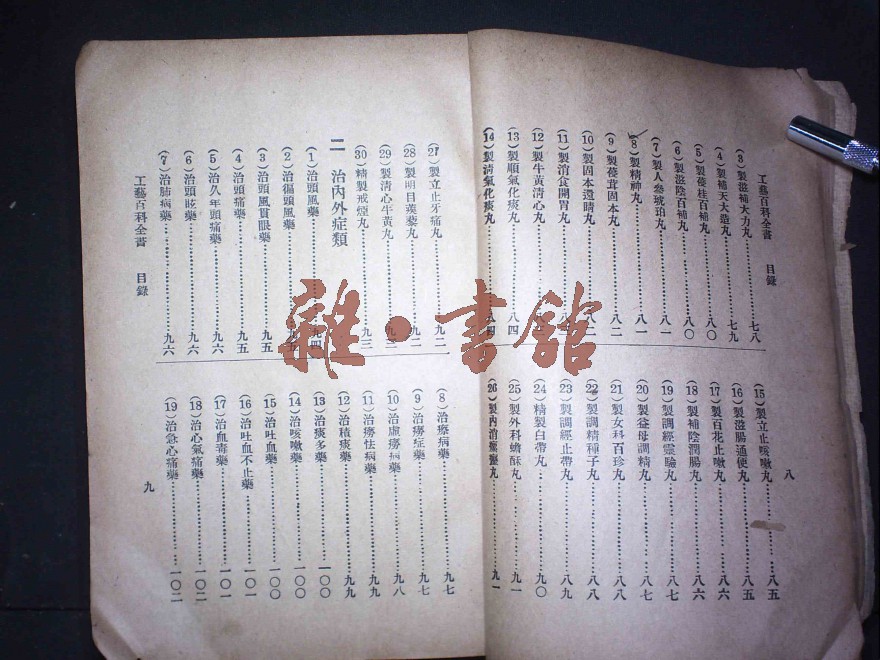 工藝百科全書　目錄
八
(3)製滋補大力丸……七八
(4)製補天大造丸……七九
(5)製蓡桂百補丸……八〇
(6)製滋陰百補丸……八〇
(7)製人參琥珀丸……八一
(8)製精神丸……八一
(9)製蓡茸固本丸……八二
(10)製固本還睛丸……八二
(11)製消食開胃丸……八
(12)製牛黃清心丸……八
(13)製順氣化痰丸……八四
(14)製清氣化痰丸……八四
(15)製立止咳嗽丸……八五
(16)製滋腸通便丸……八五
(17)製百花止嗽丸……八六
(18)製補陰潤腸丸……八六
(19)製調經靈驗丸……八七
(20)製益母調精丸……八七
(21)製女科百珍丸……八八
(22)製調精種子丸……八八
(23)製調經止帶丸……八九
(24)精製白帶丸……九〇
(25)製外科蟾酥丸……九一
(26)製內消丸……九一
(27)製立止牙痛丸……九二
(28)製明目蒺藜丸……九二
(29)製清心牛黃丸……九三
(30)精製戒煙丸……九三
二　治內外症類
(1)治頭風藥……九四
(2)治偏頭風藥……九五
(3)治頭風貫眼藥……九五
(4)治頭痛藥……九五
(5)治久年頭痛藥……九六
(6)治頭眩藥……九六
(7)治肺病藥……九六
(8)治瘵病藥……九七
(9)治癆症藥……九七
(10)治虛癆病藥……九八
(11)治癆怯病藥……九九
(12)治積痰藥……九九
(13)治痰多藥……一〇〇
(14)治咳嗽藥……一〇〇
(15)治吐血藥……一〇〇
(16)治吐血不止藥……一〇一
(17)治血毒藥……一〇一
(18)治心氣痛藥……一〇二
(19)治急心痛藥……一〇二
工藝百科全書　目錄
九
雜・書館